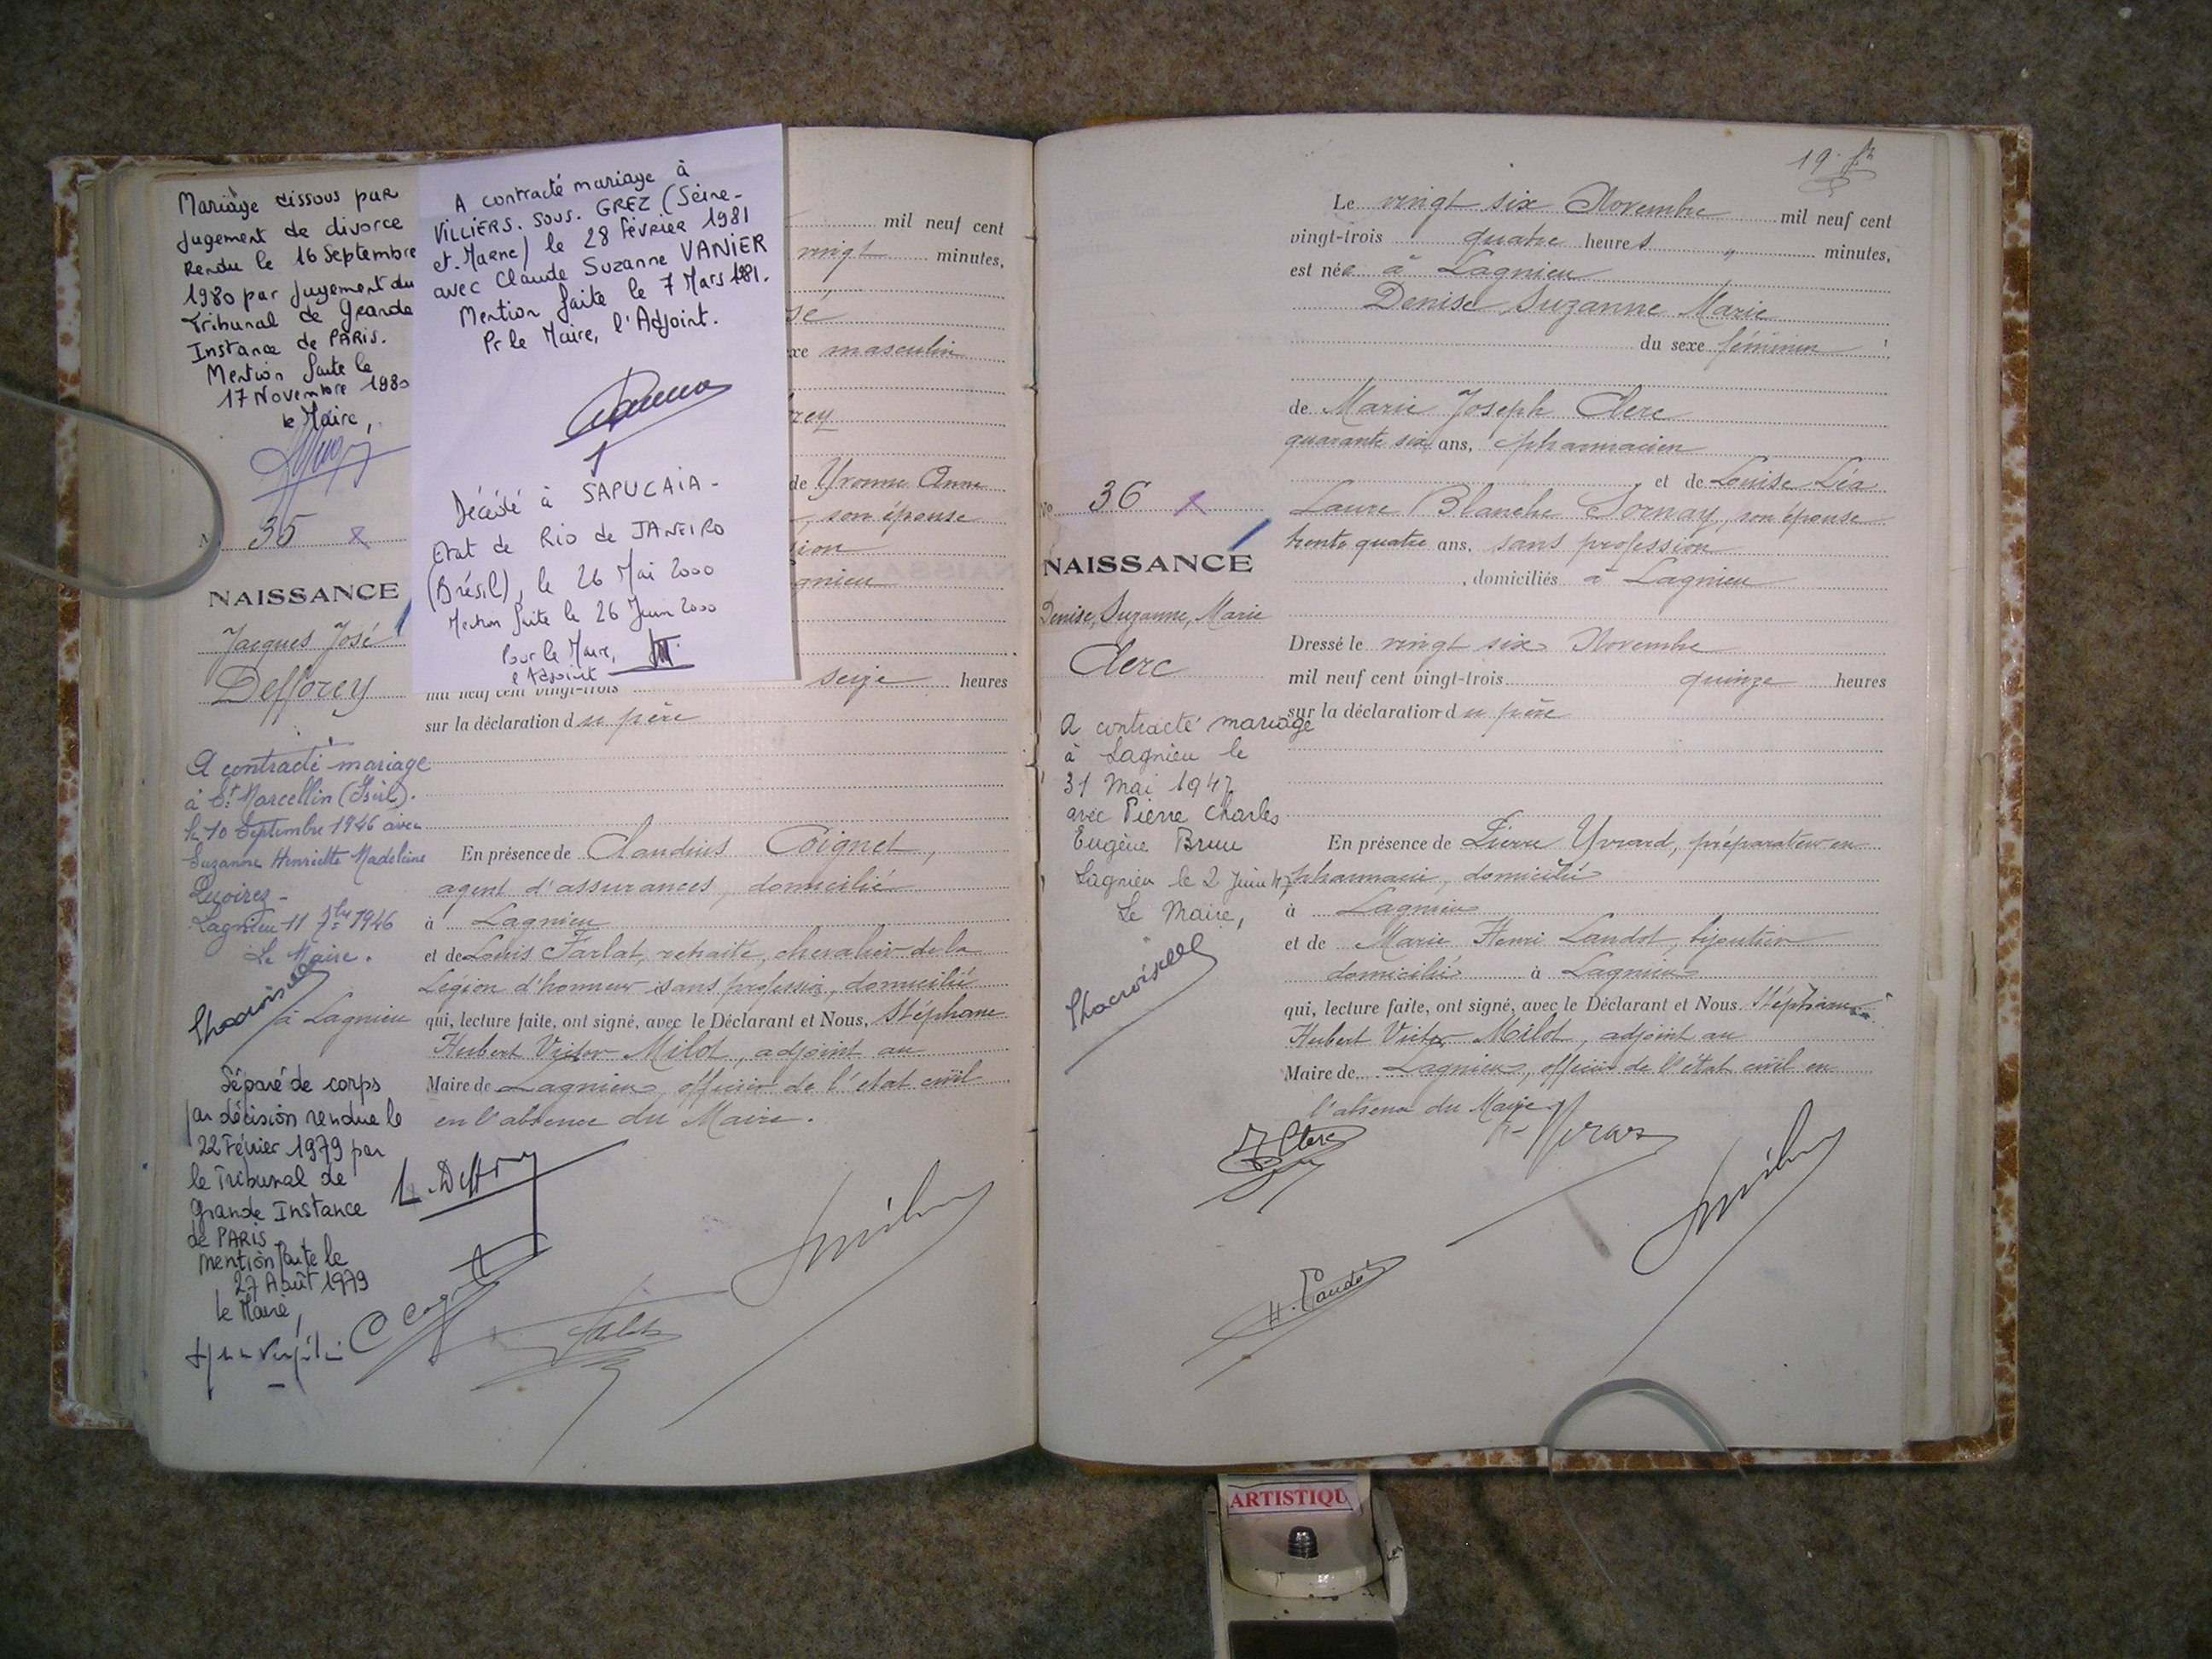 Mariage dissous par
Jugement de divorce
Rendu le 16 Septembre
1980 par Jugement du
Tribunal de Grande
Instance de PARIS.
Mention faite le
17 Novembre 1980
le Maire,
N 35
NAISSANCE
Jacques José
Defforey
A contracté mariage
à St Marcellin (Isère).
le 10 Septembre 1946 avec
Suzanne Henriette Madeleine
Lagnieu 11 7bre 1946
Le Maire.
à Lagnieu
Séparé de corps
par décision rendue le
22 Février 1979 par
le Tribunal de
Grande Instance
de PARIS
mention faite le
27 Août 1979
le Maire,
A contracté mariage à
VILLIERS. SOUS. GREZ (Seine-
et. Marne) le 28 Février 1981
avec Claude Suzanne VANIER
Mention faite le 7 Mars 1981.
Pr le Maire, l'Adjoint.
Décédé à SAPUCAIA -
Etat de RIO de JANEIRO
(Brésil), le 26 Mai 2000
Mention faite le 26 Juin 2000
Pour le Maire,
l'Adjoint
mil neuf cent
vingt minutes,
sé
xe masculin
rey
de Yvonne Anne
, son épouse
sion
gnieu
mil neuf cent vingt-trois seize heures
sur la déclaration du père
En présence de Claudius Coignet,
agent d'assurances, domicilié
à Lagnieu
et de Louis Farlat, retraité, chevalier de la
Légion d'honneur sans profession, domicilié
qui, lecture faite, ont signé, avec le Déclarant et Nous, Stéphane
Hubert Victor Milot, adjoint au
Maire de Lagnieu, officier de l'état civil
en l'absence du Maire.
L. Deffrey
19
Le vingt six Novembre mil neuf cent
vingt-trois quatre heures " minutes,
est née à Lagnieu
Denise Suzanne Marie
du sexe féminin
de Marie Joseph Clerc
quarante six ans, pharmacien
et de Louise Léa
Laure Blanche Sornay, son épouse
trente quatre ans, sans profession
, domiciliés à Lagnieu
Dressé le vingt six Novembre
mil neuf cent vingt-trois quinze heures
sur la déclaration du père
En présence de Pierre Yvrard, préparateur en
pharmacie, domicilié
à Lagnieu
et de Marie Henri Landot, bijoutier
domicilié à Lagnieu
qui, lecture faite, ont signé, avec le Déclarant et Nous Stéphane
Hubert Victor Milot, adjoint au
Maire de Lagnieu, officier de l'état civil en
l'absence du Maire.
No 36
NAISSANCE
Denise, Suzanne, Marie
Clerc
A contracté mariage
à Lagnieu le
31 Mai 1947
avec Pierre Charles
Eugène Brun
Lagnieu le 2 Juin 47
Le Maire,
J Clerc
H. Landot
ARTISTIQU